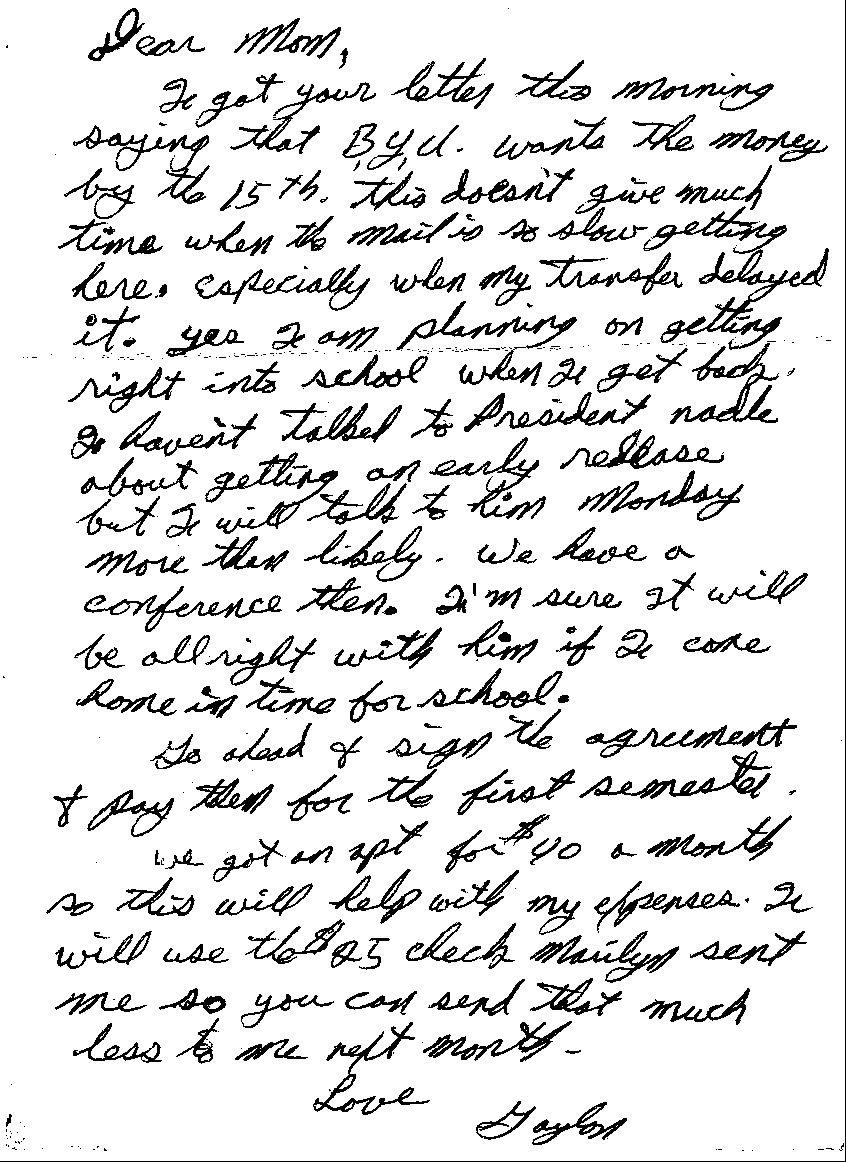 Dear Mom,
I got your letter this morning
saying that B.Y.U. wants the money
by the 15th. This doesn't give much
time when the mail is so slow getting
here. especially when my transfer delayed
it. yes I am planning on getting
right into school when I get back.
I haven't talked to President nadle
about getting an early release
but I will talk to him Monday
more than likely. We have a
conference then. I'm sure It will
be allright with him if I come
home in time for school.
Go ahead & sign the agreement
& pay them for the first semester.
We got an apt for $40 a month
so this will help with my expenses. I
will use the $25 check Marilyn sent
me so you can send that much
less to me next month -
Love
Gaylon